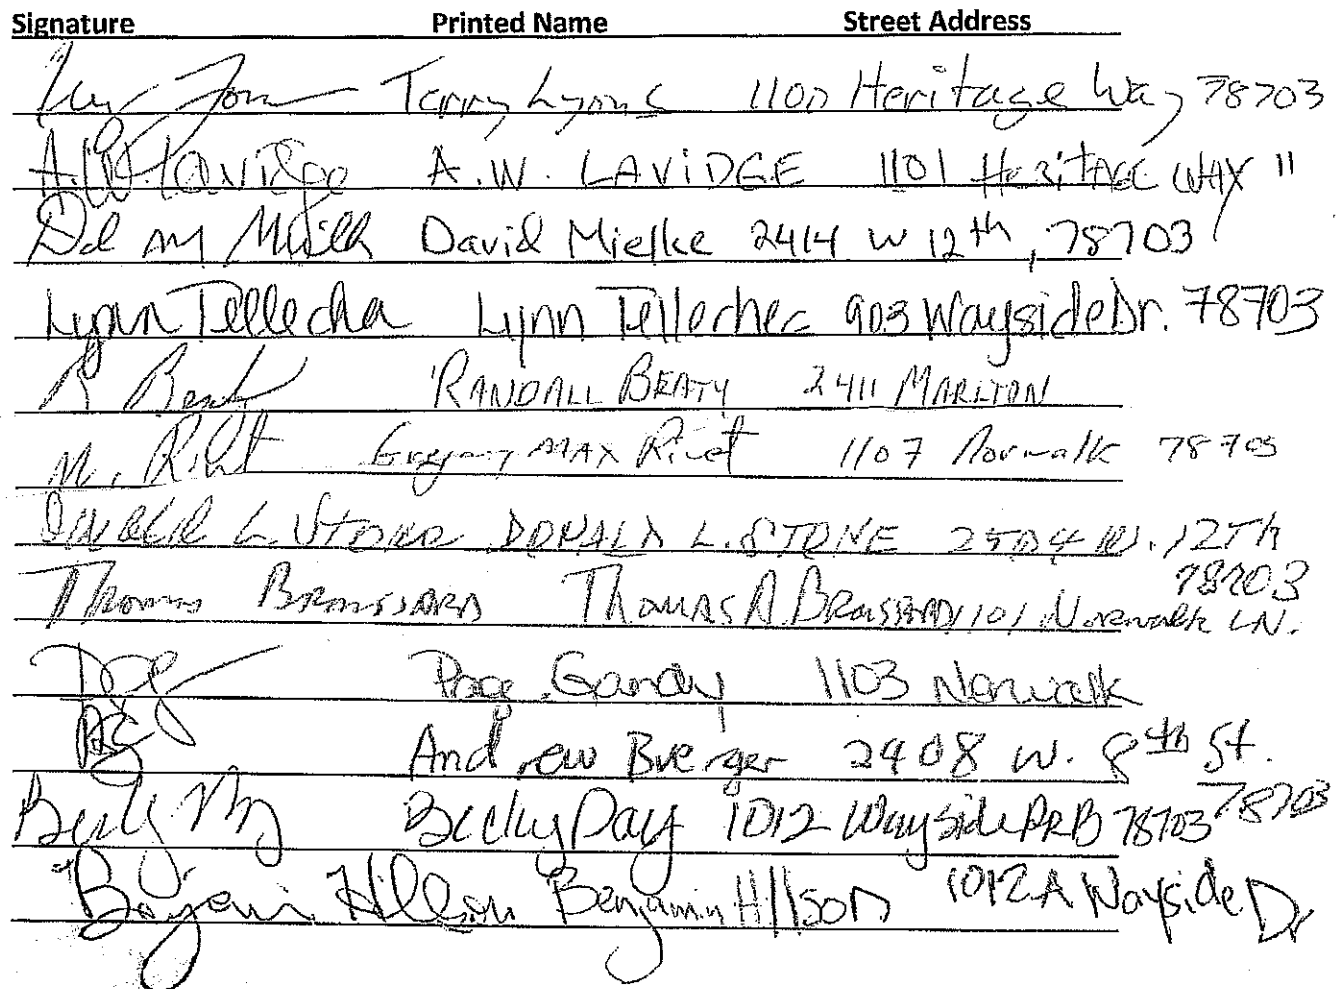 Signature Printed Name Street Address
Terry Lyons 1100 Heritage Way 78703
A.W. Lavidge A.W. LAVIDGE 1101 HERITAGE WAY "
David Mielke 2414 W 12th, 78703
Lynn Tellechea Lynn Tellechea 903 Wayside Dr. 78703
R Beaty RANDALL BEATY 2411 MARLTON
Gregory MAX 1107 Norwalk 78703
Donald L. Stone DONALD L. STONE 2504 W. 12Th
78703
Thomas BROUSSARD Thomas A. BROUSSARD 1101 Norwalk LN.
Page Gandy 1103 Norwalk
Andrew Buerger 2408 W. 8th St.
78703
Becky Day Becky Day 1012 Wayside Dr B 78703
Benjamin Hillson Benjamin Hillson 1012 A Wayside Dr